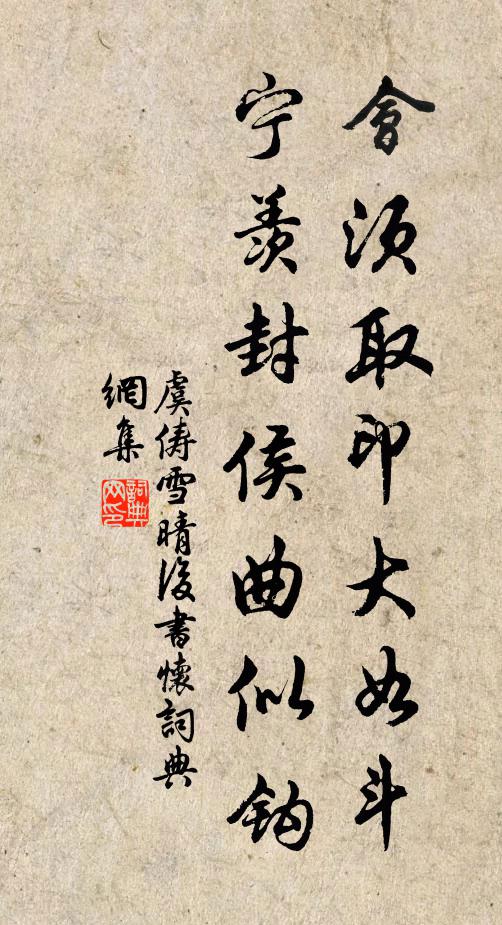 會須取印大如斗
宁羨封侯曲似鈎
虞俦雪晴後書懷詞典
網集
詞典
网印